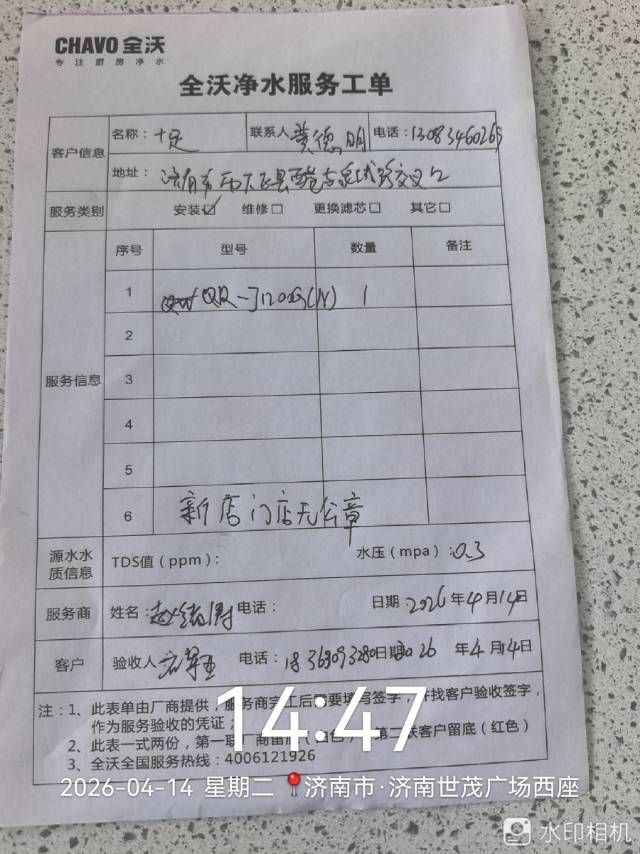 CHAVO 全沃
专注厨房净水
全沃净水服务工单
客户信息
名称：十足 联系人 黄德明 电话：13083460265
地址：济南市历下区县西巷与泉城路交叉口
服务类别 安装☑ 维修□ 更换滤芯□ 其它□
服务信息
序号 型号 数量 备注
1 1
2
3
4
5
6 新店门店无公章
源水水质信息 TDS值（ppm）： 水压（mpa）：0.3
服务商 姓名 电话： 日期：2026年4月14日
客户 验收人 电话： 日期 2026 年4月14日
注：1、此表单由厂商提供，服务商完工后需要填写签字，并找客户验收签字，
作为服务验收的凭证；
2、此表一式两份，第一联厂商留底（白色），第二联客户留底（红色）
3、全沃全国服务热线：4006121926
14:47
2026-04-14 星期二 济南市·济南世茂广场西座
水印相机